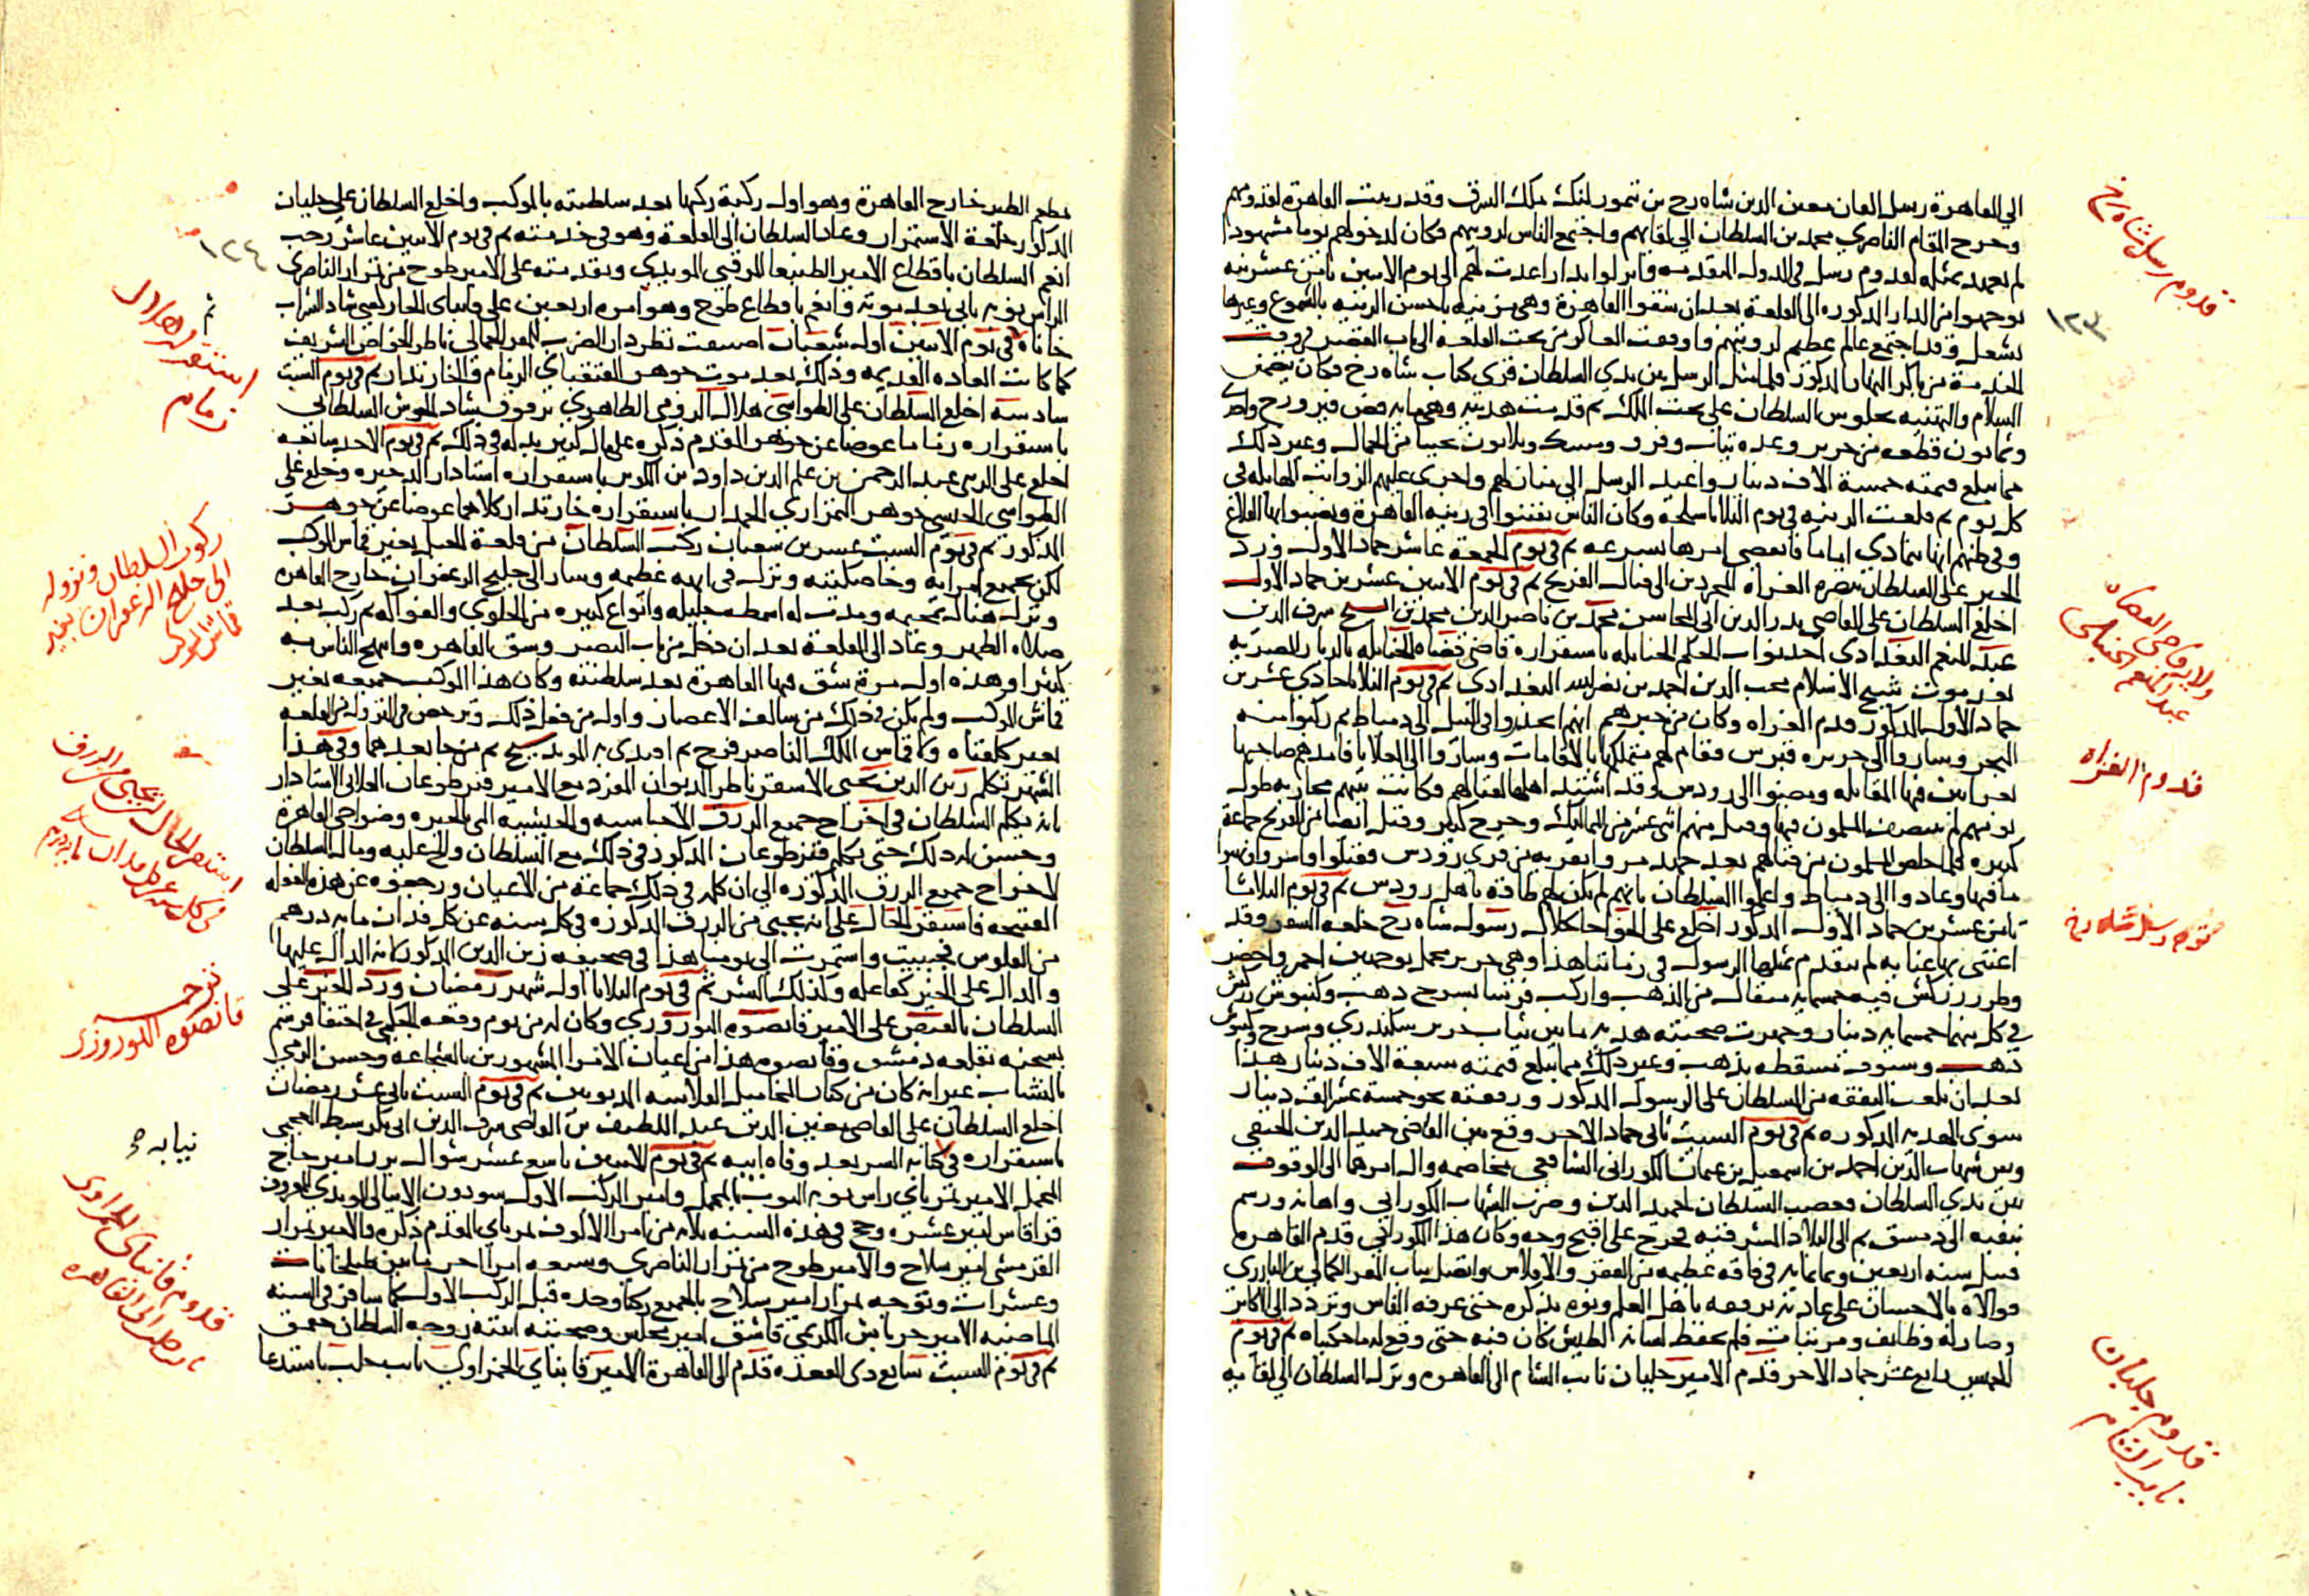 الي القاهرة رسل القان معين الدين شاه رخ بن تمور لنك ملك الشرق وقد زينت القاهرة لقدومهم
وخرج المقام الناصري محمد بن السلطان الي لقايهم واجتمع الناس لرويتهم وكان لدخولهم يوما مشهودا
لم يعهد بمثله لقدوم رسل في الدوله المتقدمه فانزلوا بدار اعدت لهم الي يوم الاثنين ثامن عشرينه
توجهوا من الدار المذكوره الي القلعة بعد ان شقوا القاهرة وهي مزينه باحسن الزينه بالشموع وغيرها
تشعل وقد اجتمع عالم عظيم لرويتهم واوقفت العساكر من تحت القلعه الي باب القصر في وقت
الخدمة من باكر النهار المذكور فلما مثل الرسل بين يدي السلطان قري كتاب شاه رخ فكان يتضمن
السلام والتهنيه بجلوس السلطان علي تحت الملك ثم قدمت هديته وهي مايه فص فيروزج واحد
وثمانون قطعه من حرير وعده ثياب وفرو ومسك وثلاثون بختيا من الجمال وغير ذلك
مما يبلغ قيمته خمسة الاف دينار واعيد الرسل الي مكان لهم واجري عليهم الرواتب الهايله في
كل يوم ثم قلعت الزينه في يوم الثلاثا سلخه وكان الناس تفننوا في زينه القاهرة ونصبوا بها القلاع
وفي ظنهم انها تتمادي اياما فانقضي امرها بسرعه ثم في يوم الجمعة عاشر جماد الاول ورد
الخبر علي السلطان بنصره الغزاه المجردين الي قتال الفرنج ثم في يوم الاثنين عشرين جماد الاول
اخلع السلطان علي القاضي بدر الدين ابي المحاسن محمد بن ناصر الدين محمد بن الشيخ شرف الدين
عبد المنعم البغدادي احد نواب الحكم الحنابله باستقراره قاضي قضاه الحنابله بالديار المصريه
بعد موت شيخ الاسلام محب الدين احمد بن نصر الله البغدادي ثم في يوم الثلاثا حادي عشرين
جماد الاول المذكور قدم الغزاه وكان من خبرهم انهم انحدروا في النيل الي دمياط ثم ركبوا منه
البحر وساروا الي جزيره قبرس فقام لهم متملكها بالاقامات وساروا الي العلايا فامدهم صاحبها
بغرابين فيها المقاتله ومضوا الي رودس وقد استعد اهلها لقتالهم فكانت بينهم محاربه طول
يومهم لم ينتصف المسلمون فيها وقتل منهم اثني عشر من المماليك وجرح كثير وقتل ايضا من الفرنج جماعة
كثيره فلما خلص المسلمون من قتالهم بعد جهد مروا بقريه من قري رودس فقتلوا واسروا ونهبوا
ما فيها وعادوا الي دمياط واعلموا السلطان بانهم لم يكن لهم طاقة باهل رودس ثم في يوم الثلاثا
ثامن عشرين جماد الاول المذكور اخلع علي الخواجا كلال رسول شاه رخ خلعه السفر وقد
اعتني بها عنايه لم يتقدم بمثلها الرسول في زماننا هذا وهي حرير مخمل بوجهين احمر واخضر
وطرز زركش فيه خمسمايه مثقال من الذهب واركب فرسا بسرج ذهب وكنبوش زركش
في كل منهما خمسمايه دينار وجهزت صحبته هديه ما بين ثياب حرير سكندري وسرج وكنبوش
ذهب وسيوف مسقطه بذهب وغير ذلك مما يبلغ قيمته سبعة الاف دينار هذا
بعد ان بلغت النفقه من السلطان علي الرسول المذكور ورفقته نحو خمسة عشر الف دينار
سوي الهديه المذكوره ثم في يوم السبت ثاني جماد الاخر وقع بين القاضي حميد الدين الحنفي
وبين شهاب الدين احمد بن اسمعيل بن عثمان الكوراني الشافعي مخاصمه وال امرهما الي الوقوف
بين يدي السلطان فغضب السلطان لحميد الدين وضرب الشهاب الكوراني واهانه ورسم
بنفيه الي دمشق ثم الي البلاد المشرقيه فخرج علي اقبح وجه وكان هذا الكوراني قدم القاهرة
قبيل سنه اربعين وثمانمايه في فاقه عظيمه من الفقر والافلاس واتصل بباب المقر الكمالي بن البارزي
فوالاه بالاحسان علي عادته برفعه باهل العلم ونوه بذكره حتي عرفه الناس وتردد الي الاكابر
وصار له وظايف ومرتبات فلم يحفظ لسانه الطيش كان فيه حتي وقع له ما حكيناه ثم في يوم
الخميس رابع عشر جماد الاخر قدم الامير جلبان نايب الشام الي القاهره ونزل السلطان الي لقايه
قدوم رسل شاه رخ
١٢٣
ولايه قاضي القضاه
عبد المنعم الحنبلي
قدوم الغزاه
توجه رسل شاه رخ
قدوم جلبان
نايب الشام
مطعم الطير خارج القاهرة وهو اول ركبة ركبها بعد سلطنته بالموكب واخلع السلطان علي جلبان
المذكور خلعة الاستمرار وعاد السلطان الي القلعة وهو في خدمته ثم في يوم الاثنين عاشر رجب
انعم السلطان باقطاع الامير الطنبغا المرقبي المويدي وتقدمته علي الامير طوخ من تمراز الناصري
الراس نوبه ثاني بعد موته وانعم باقطاع طوخ وهو امره اربعين علي قانباي الجاركسي شاد الشراب
خاناه في يوم الاثنين اول شعبان اضيفت نظر دار الضرب للمقر الجمالي ناظر الخواص الشريف
كما كانت العاده القديمه وذلك بعد موت جوهر القنقباي الزمام والخازندار ثم في يوم السبت
سادسه اخلع السلطان علي الطواشي هلال الرومي الظاهري برقوق شاد الحوش السلطاني
باستقراره زماما عوضا عن جوهر المقدم ذكره علي مال كبير بذله في ذلك ثم في يوم الاحد سابعه
اخلع علي الزيني عبد الرحمن بن علم الدين داود بن الكويز باستقراره استادار الذخيره وخلع علي
الطواشي الحبشي جوهر التمرازي الجمدار باستقراره خازندار كلاهما عوضا عن جوهر
المذكور ثم في يوم السبت عشرين شعبان ركب السلطان من قلعة الجبل بغير قماش الموكب
لكن بجميع امرايه وخاصكيته ونزل في ابهه عظيمه وسار الي خليج الزعفران خارج القاهره
ونزل هناك بمخيمه ومدت له اسمطه جليله وانواع كثيره من الحلوي والفواكه ثم ركب بعد
صلاه الظهر وعاد الي القلعة بعد ان دخل من باب النصر وشق القاهره وابتهج الناس به
كثيرا وهذه اول مرة شق فيها القاهرة بعد سلطنته وكان هذا الموكب جميعه بغير
قماش الموكب ولم يكن في ذلك من سالف الاعصار واول من فعل ذلك وترخص في النزول من القلعه
بغير كلفتاه ولا قماش الملك الناصر فرج ثم اقتدي به المويد شيخ ثم من جا بعدهما وفي هذا
الشهر تكلم زين الدين يحيي الاشقر ناظر الديوان المفرد مع الامير قيزطوغان العلائي الاستادار
بان يكلم السلطان في اخراج جميع الرزق الاحباسيه والجيشيه التي بالجيزه وضواحي القاهرة
وحسن له ذلك حتي تكلم قيزطوغان المذكور في ذلك مع السلطان والح عليه ومال السلطان
لاخراج جميع الرزق المذكوره الي ان كلمه في ذلك جماعة من الاعيان ورجعوه عن هذه الفعله
القبيحه فاستقر الحال علي انه يجبي من الرزق المذكوره في كل سنه عن كل فدان مايه درهم
من الفلوس فجبيت واستمرت الي يومنا هذا في صحيفه زين الدين المذكور كانه الدال عليها
والدال علي الخير كفاعله وكذلك الشر ثم في يوم الثلاثا اول شهر رمضان ورد الخبر علي
السلطان بالقبض علي الامير قانصوه النوروزي وكان له من يوم وقعه الجكمي في اختفا فرسم
بسجنه بقلعه دمشق وقانصوه هذا من اعيان الامرا المشهورين بالشجاعه وحسن الرمي
بالنشاب غير انه كان من كبار المخاميل الفلاسه المديونين ثم في يوم السبت ثاني عشر رمضان
اخلع السلطان علي القاضي معين الدين عبد اللطيف بن القاضي شرف الدين ابي بكر سبط العجمي
باستقراره في كتابه السر بعد وفاه ابيه ثم في يوم الاثنين تاسع عشر شوال برز امير حاج
المحمل الامير تمرباي راس نوبه النوب بالمحمل وامير الركب الاول سودون الاينالي المويدي المعروف
قراقاس امير عشره وحج في هذه السنه ثلاثه من امرا الالوف تمرباي المقدم ذكره والامير تمراز
القرمشي امير سلاح والامير طوخ من تمراز الناصري وسبعه امرا اخر ما بين طبلخانات
وعشرات وتوجه تمراز امير سلاح بالجميع ركبا وحده قبل الركب الاول كما سافر في السنه
الماضيه الامير جرباش الكريمي قاشق امير مجلس وصحبته ابنته زوجه السلطان جقمق
ثم في يوم السبت سابع ذي القعده قدم الي القاهرة الامير قانباي الحمزاوي نايب حلب باستدعا
١٢٤
ثم
استقر هلال
زمام
ركوب السلطان ونزوله
الي خليج الزعفران بغير
قماش الموكب
استقر الحال ان يجبي من الرزق
في كل سنه عن كل فدان مايه درهم
ترجمه
قانصوه النوروزي
نيابه
قدوم قانباي الحمزاوي
نايب حلب الي القاهره